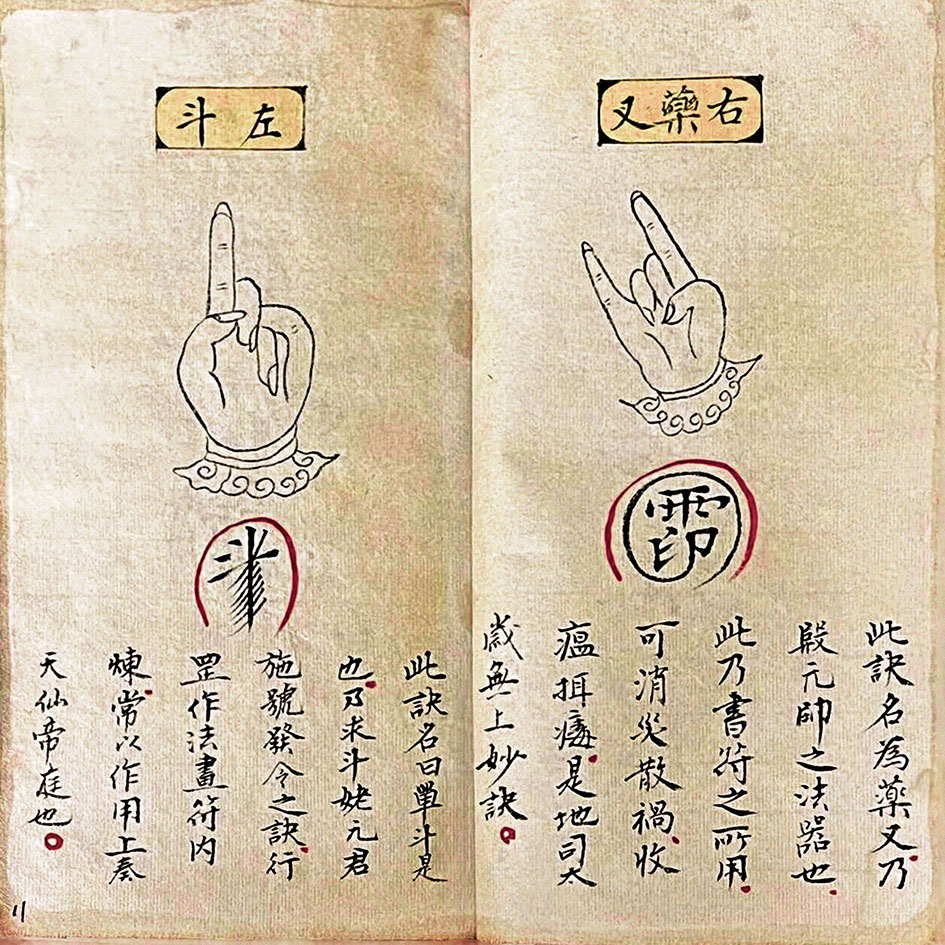 右藥叉
此訣名為藥叉乃
殷元帥之法器也
此乃書符之所用
可消災散禍收
瘟是地司太
歲無上妙訣
左斗
此訣名曰單斗是
也乃求斗姥元君
施號發令之訣行
罡作法畫符內
煉常以作用上奏
天仙帝庭也
11